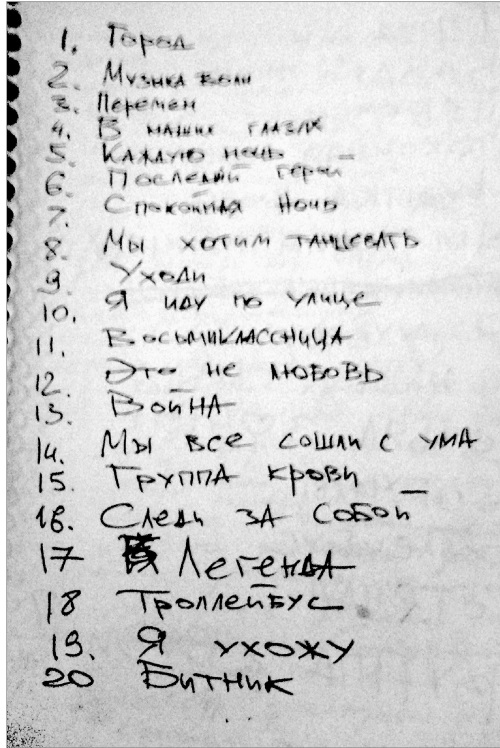 1. Город
2. Музыка волн
3. Перемен
4. В наших глазах
5. Каждую ночь
6. Последний герой
7. Спокойная Ночь
8. Мы хотим танцевать
9. Уходи
10. Я иду по улице
11. Восьмиклассница
12. Это не любовь
13. Война
14. Мы все сошли с ума
15. Группа крови
16. Следи за собой
17 Легенда
18 Троллейбус
19. Я ухожу
20 Битник